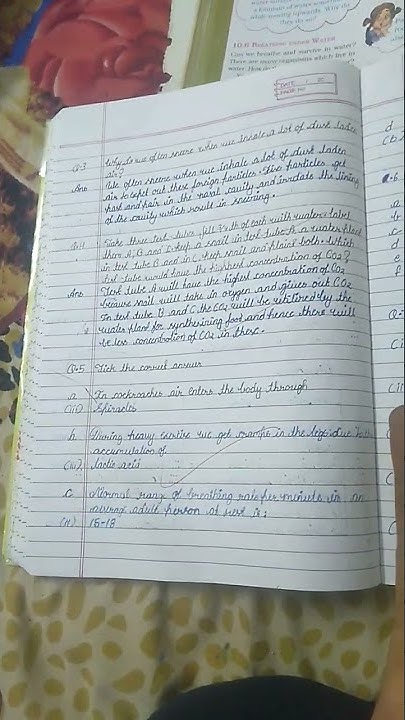 10.6 BREATHING UNDER WATER
Can we breathe and survive in water?
There are many organisms which live in
DATE
PAGE NO.
Q.3 Why do we often sneeze when we inhale a lot of dust laden
air?
Ans We often sneeze when we inhale a lot of dust laden
air to expel out these foreign particles. The particles get
past and hair in the nasal cavity and irritate the lining
of the cavity which result in sneezing.
Q.4 Take three test-tubes, fill 3/4th of each with water. Label
them A, B and C. Keep a snail in test tube A, a water plant
in test tube B and in C, keep snail and plant both. Which
test-tube would have the highest concentration of CO2?
Ans Test tube A will have the highest concentration of CO2
because snail will take in oxygen and gives out CO2
In test tube B and C the CO2 will be utilized by the
water plant for synthesizing food and hence there will
be less concentration of CO2 in these.
Q.5 Tick the correct answer
a In cockroaches air enters the body through
(iii) Spiracles
b During heavy exercise we get cramps in the legs due to the
accumulation of
(iii) lactic acid
c Normal range of breathing rate per minute in an
average adult person at rest is:
(ii) 15-18